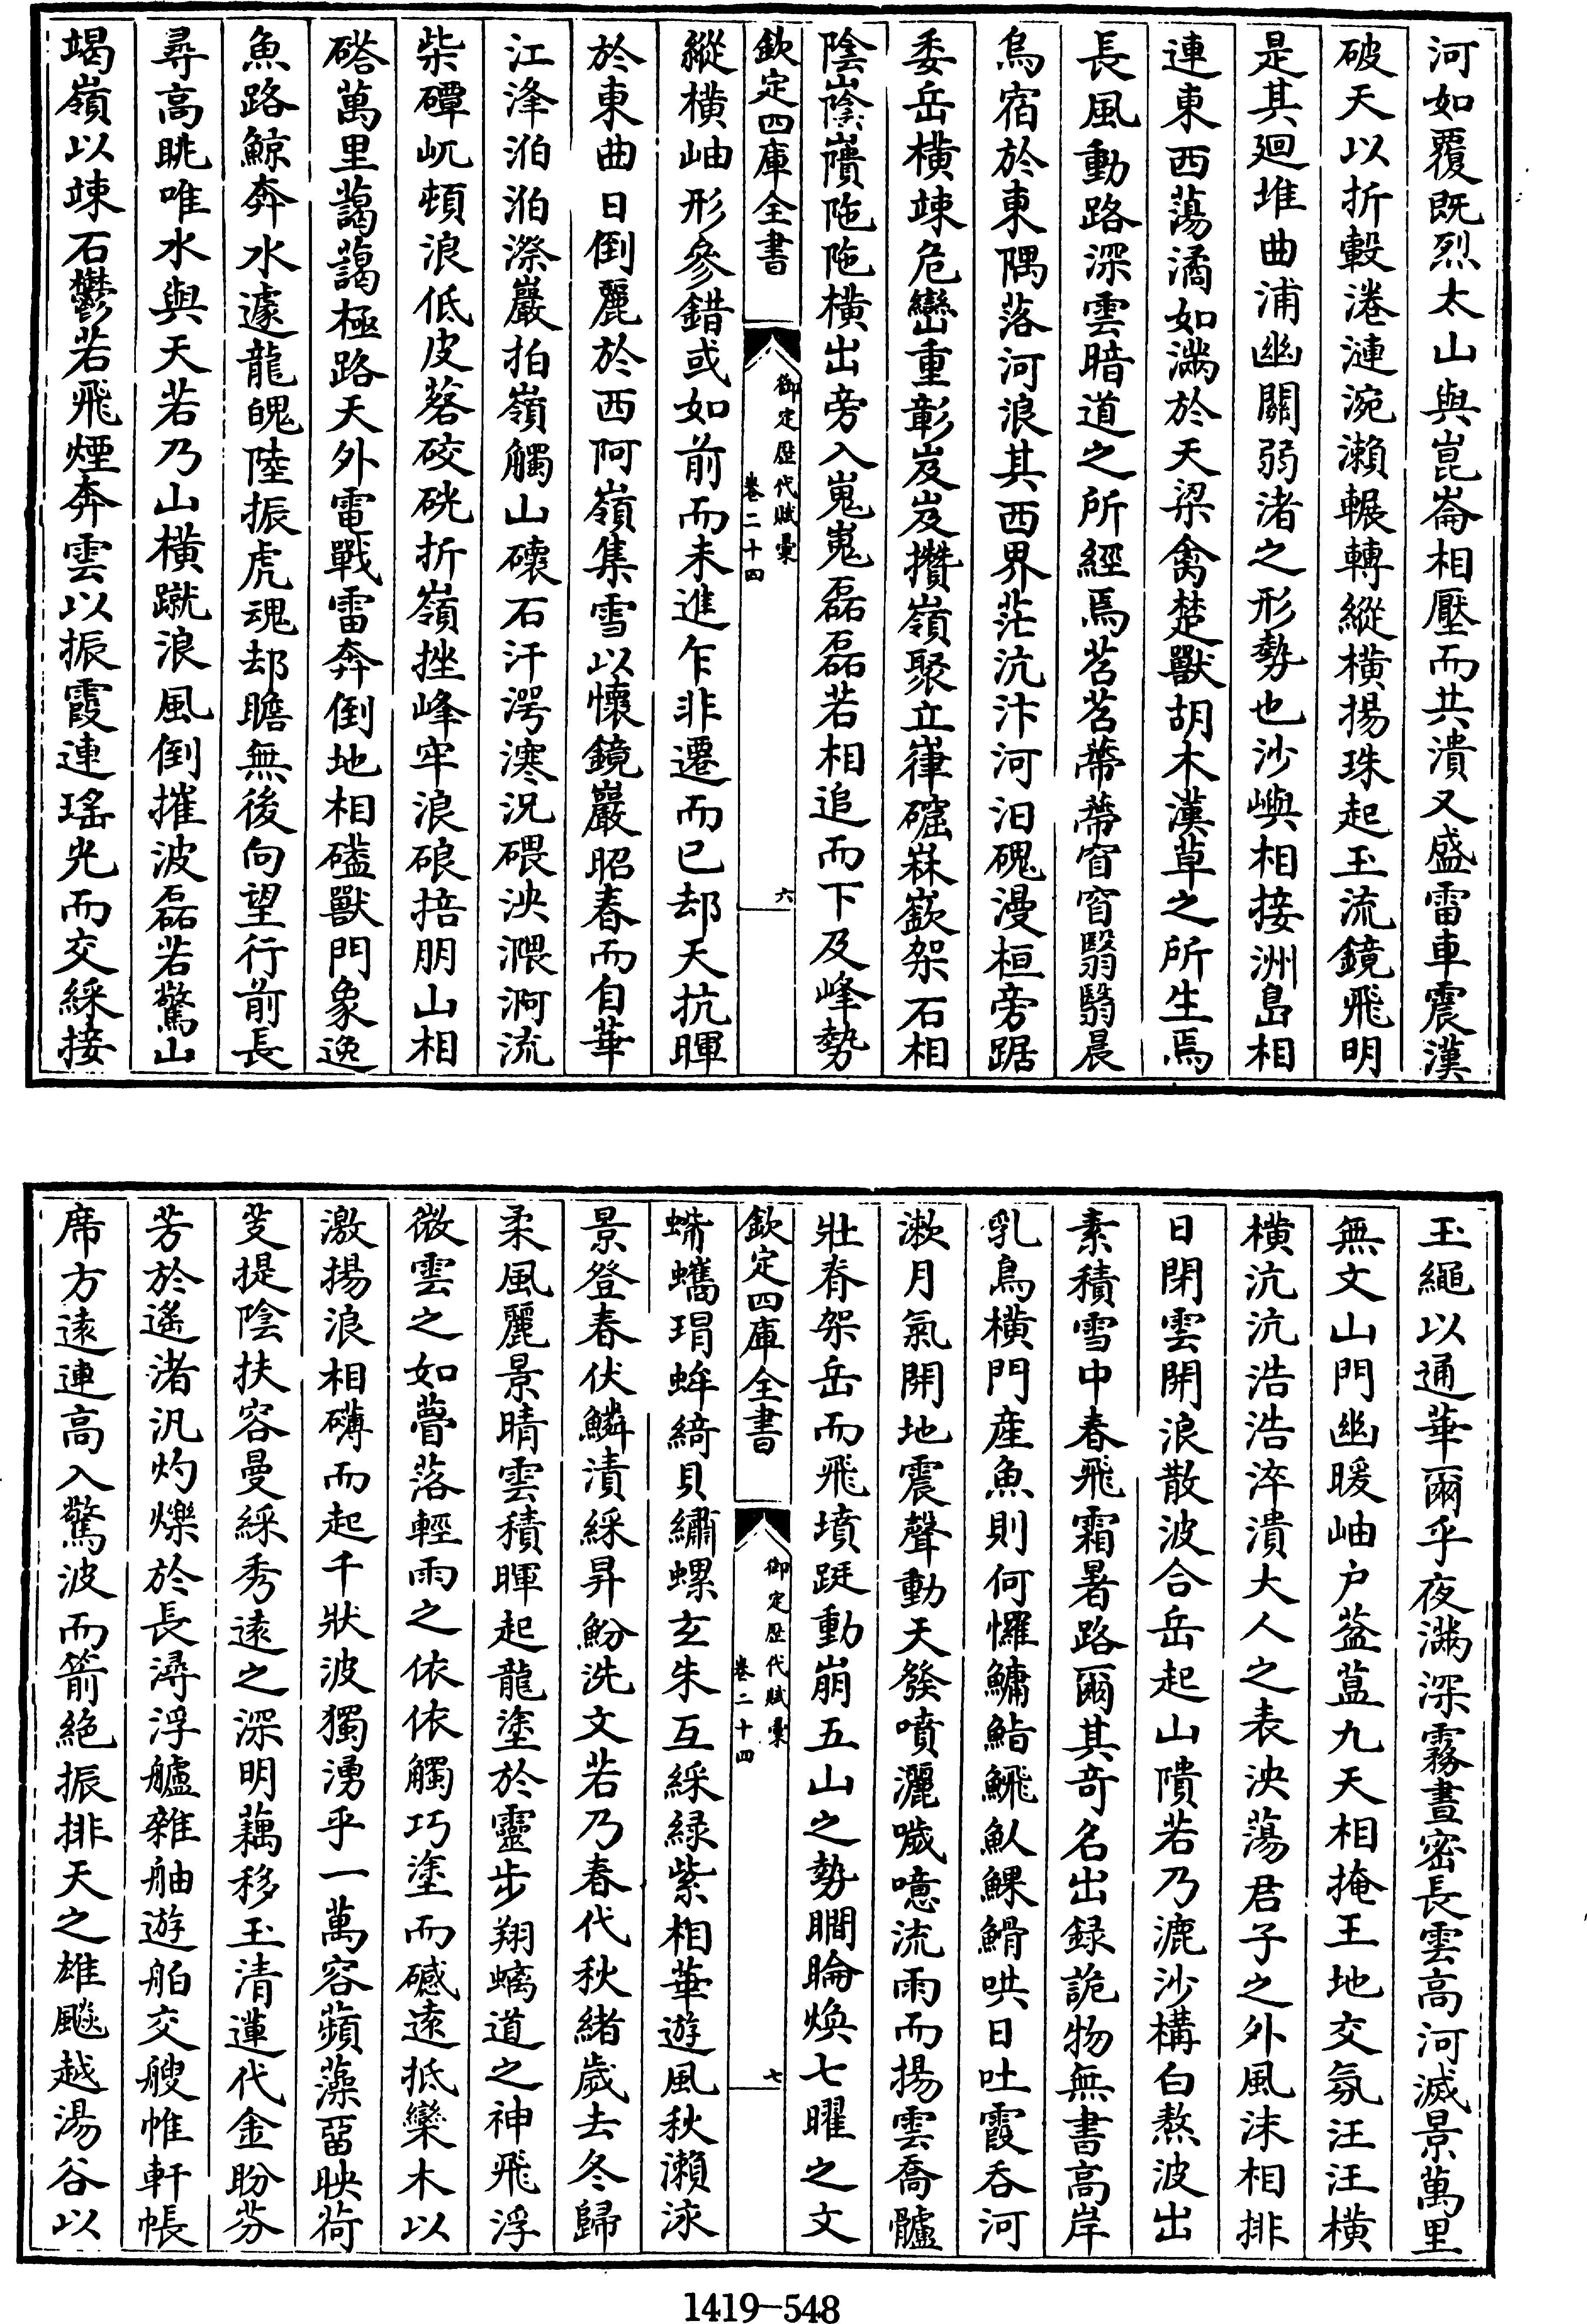 河如覆既烈太山與崑崙相壓而共潰又盛雷車震漢
破天以折轂港漣涴瀨輾轉縱橫揚珠起玉流鏡飛明
是其迴堆曲浦幽關弱渚之形勢也沙嶼相接洲島相
連東西蕩潏如滿於天梁禽楚獸胡木漢草之所生焉
長風動路深雲暗道之所經焉苕苕蔕蔕窅窅翳翳晨
烏宿於東隅落河浪其西界茫沆汴河汨磈漫桓旁踞
委岳橫竦危巒重彰岌岌攢嶺聚立嵂䃮嵚架石相
陰㟴陁陁橫出旁入嵬嵬磊磊若相追而下及峰勢
欽定四庫全書
御定歷代賦彙
卷二十四
六
縱橫岫形參錯或如前而未進乍非遷而已却天抗暉
於東曲日倒麗於西阿嶺集雪以懷鏡巖昭春而自華
江洚洦洦漈巖拍嶺觸山磢石汗湂況碨泱㵽流
柴磹屼頓浪低皮硌硄折嶺挫峰牢浪硠掊朋山相
磕萬里藹藹極路天外電戰雷奔倒地相磕獸門象逸
魚路鯨奔水遽龍魄陸振虎魂却瞻無後向望行前長
尋高眺唯水與天若乃山橫蹴浪風倒摧波磊若驚山
竭嶺以竦石鬱若飛煙奔雲以振霞連瑤光而交綵接
玉繩以通華爾乎夜滿深霧晝密長雲高河滅景萬里
無文山門幽暖岫户葐蒀九天相掩王地交氛汪汪橫
橫沆沆浩浩淬潰大人之表泱蕩君子之外風沫相排
日閉雲開浪散波合岳起山隤若乃漉沙構白熬波出
素積雪中春飛霜暑路爾其奇名出錄詭物無書高岸
乳鳥橫門產魚則何㦬鱅鮨䱀魞鰥䱻哄日吐霞吞河
漱月氣開地震聲動天發噴灑噦噫流雨而揚雲喬髗
壯脊架岳而飛墳踁動崩五山之勢瞷睔煥七曜之文
欽定四庫全書
御定歷代賦彙
卷二十四
七
蟕蠵瑁蛑綺貝繡螺玄朱互綵綠紫相華遊風秋瀨泳
景登春伏鱗漬綵昇魵洗文若乃春代秋緒歲去冬歸
柔風麗景晴雲積暉起龍塗於靈步翔螭道之神飛浮
微雲之如瞢落輕雨之依依觸巧塗而磩遠抵欒木以
激揚浪相礡而起千狀波獨湧乎一萬容蘋藻留映荷
芰提陰扶容曼綵秀遠之深明藕移玉清蓮代金盼芬
芳於遙渚汎灼爍於長潯浮艫雜舳遊舶交艘帷軒帳
席方遠連高入驚波而箭絕振排天之雄飈越湯谷以
1419-548